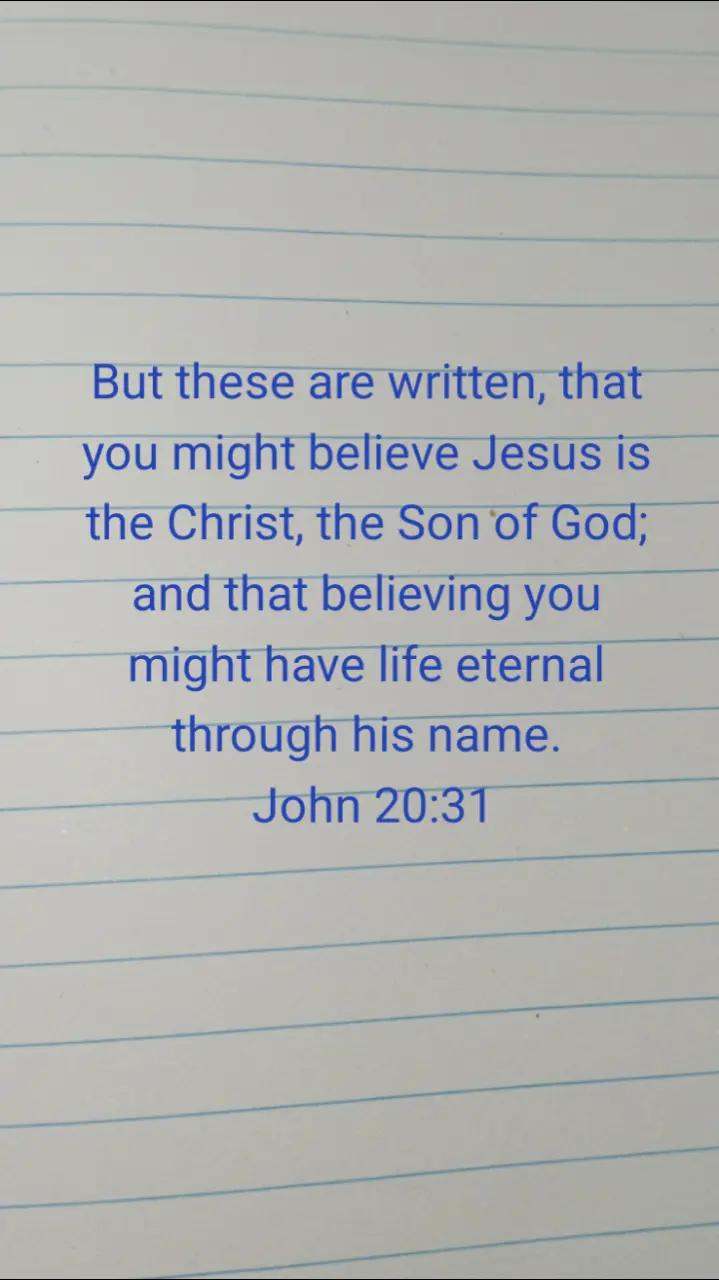 But these are written, that
you might believe Jesus is
the Christ, the Son of God;
and that believing you
might have life eternal
through his name.
John 20:31